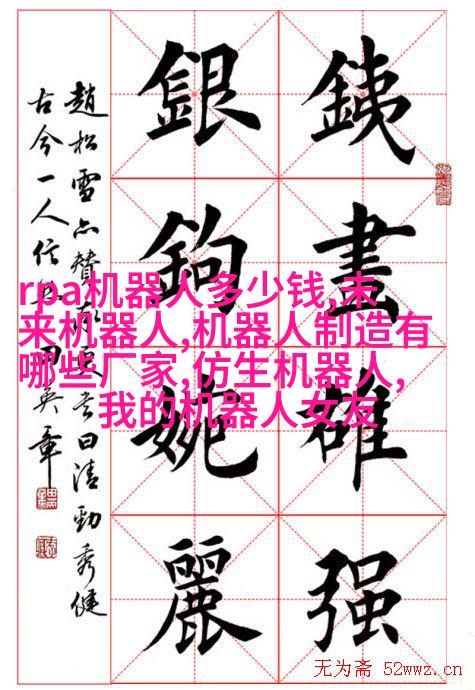 銕畫雄强
銀鉤婉麗
趙松雪亦贊 書曰清勁秀健
古今一人信 田英章
rpa机器人多少钱,未
来机器人,机器人制造有
哪些厂家,仿生机器人,
我的机器人女友
无为斋 52wwz.cn